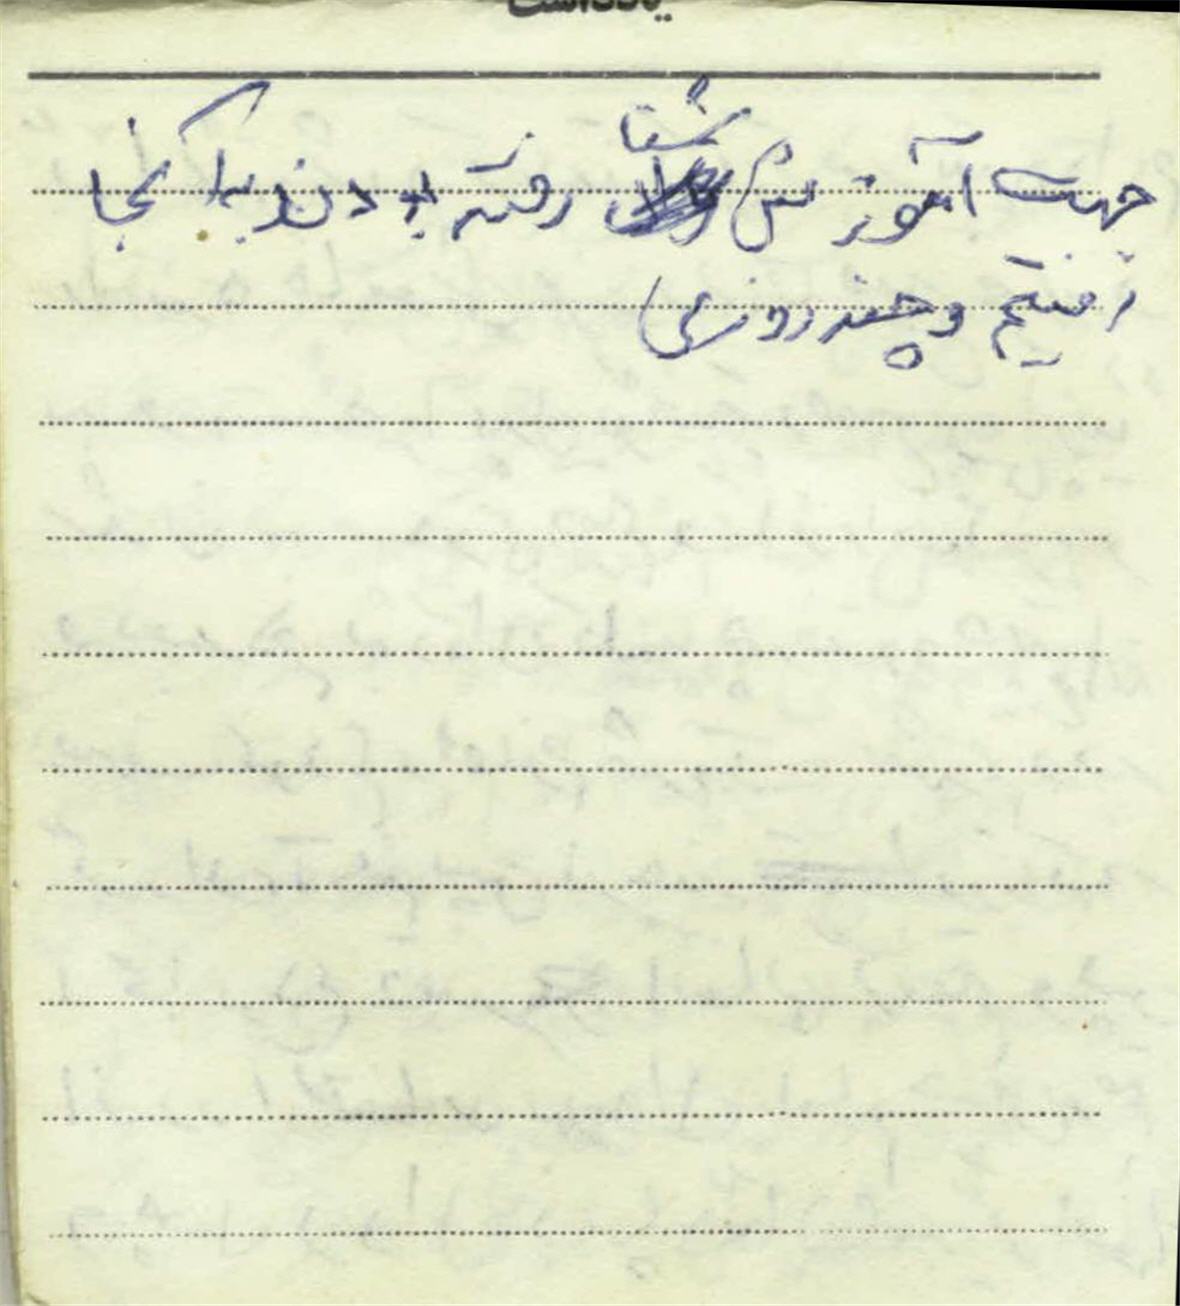 یادداشت
جهت آموزش شنا رفته بودند به آنجا
رفتیم و چند روزی